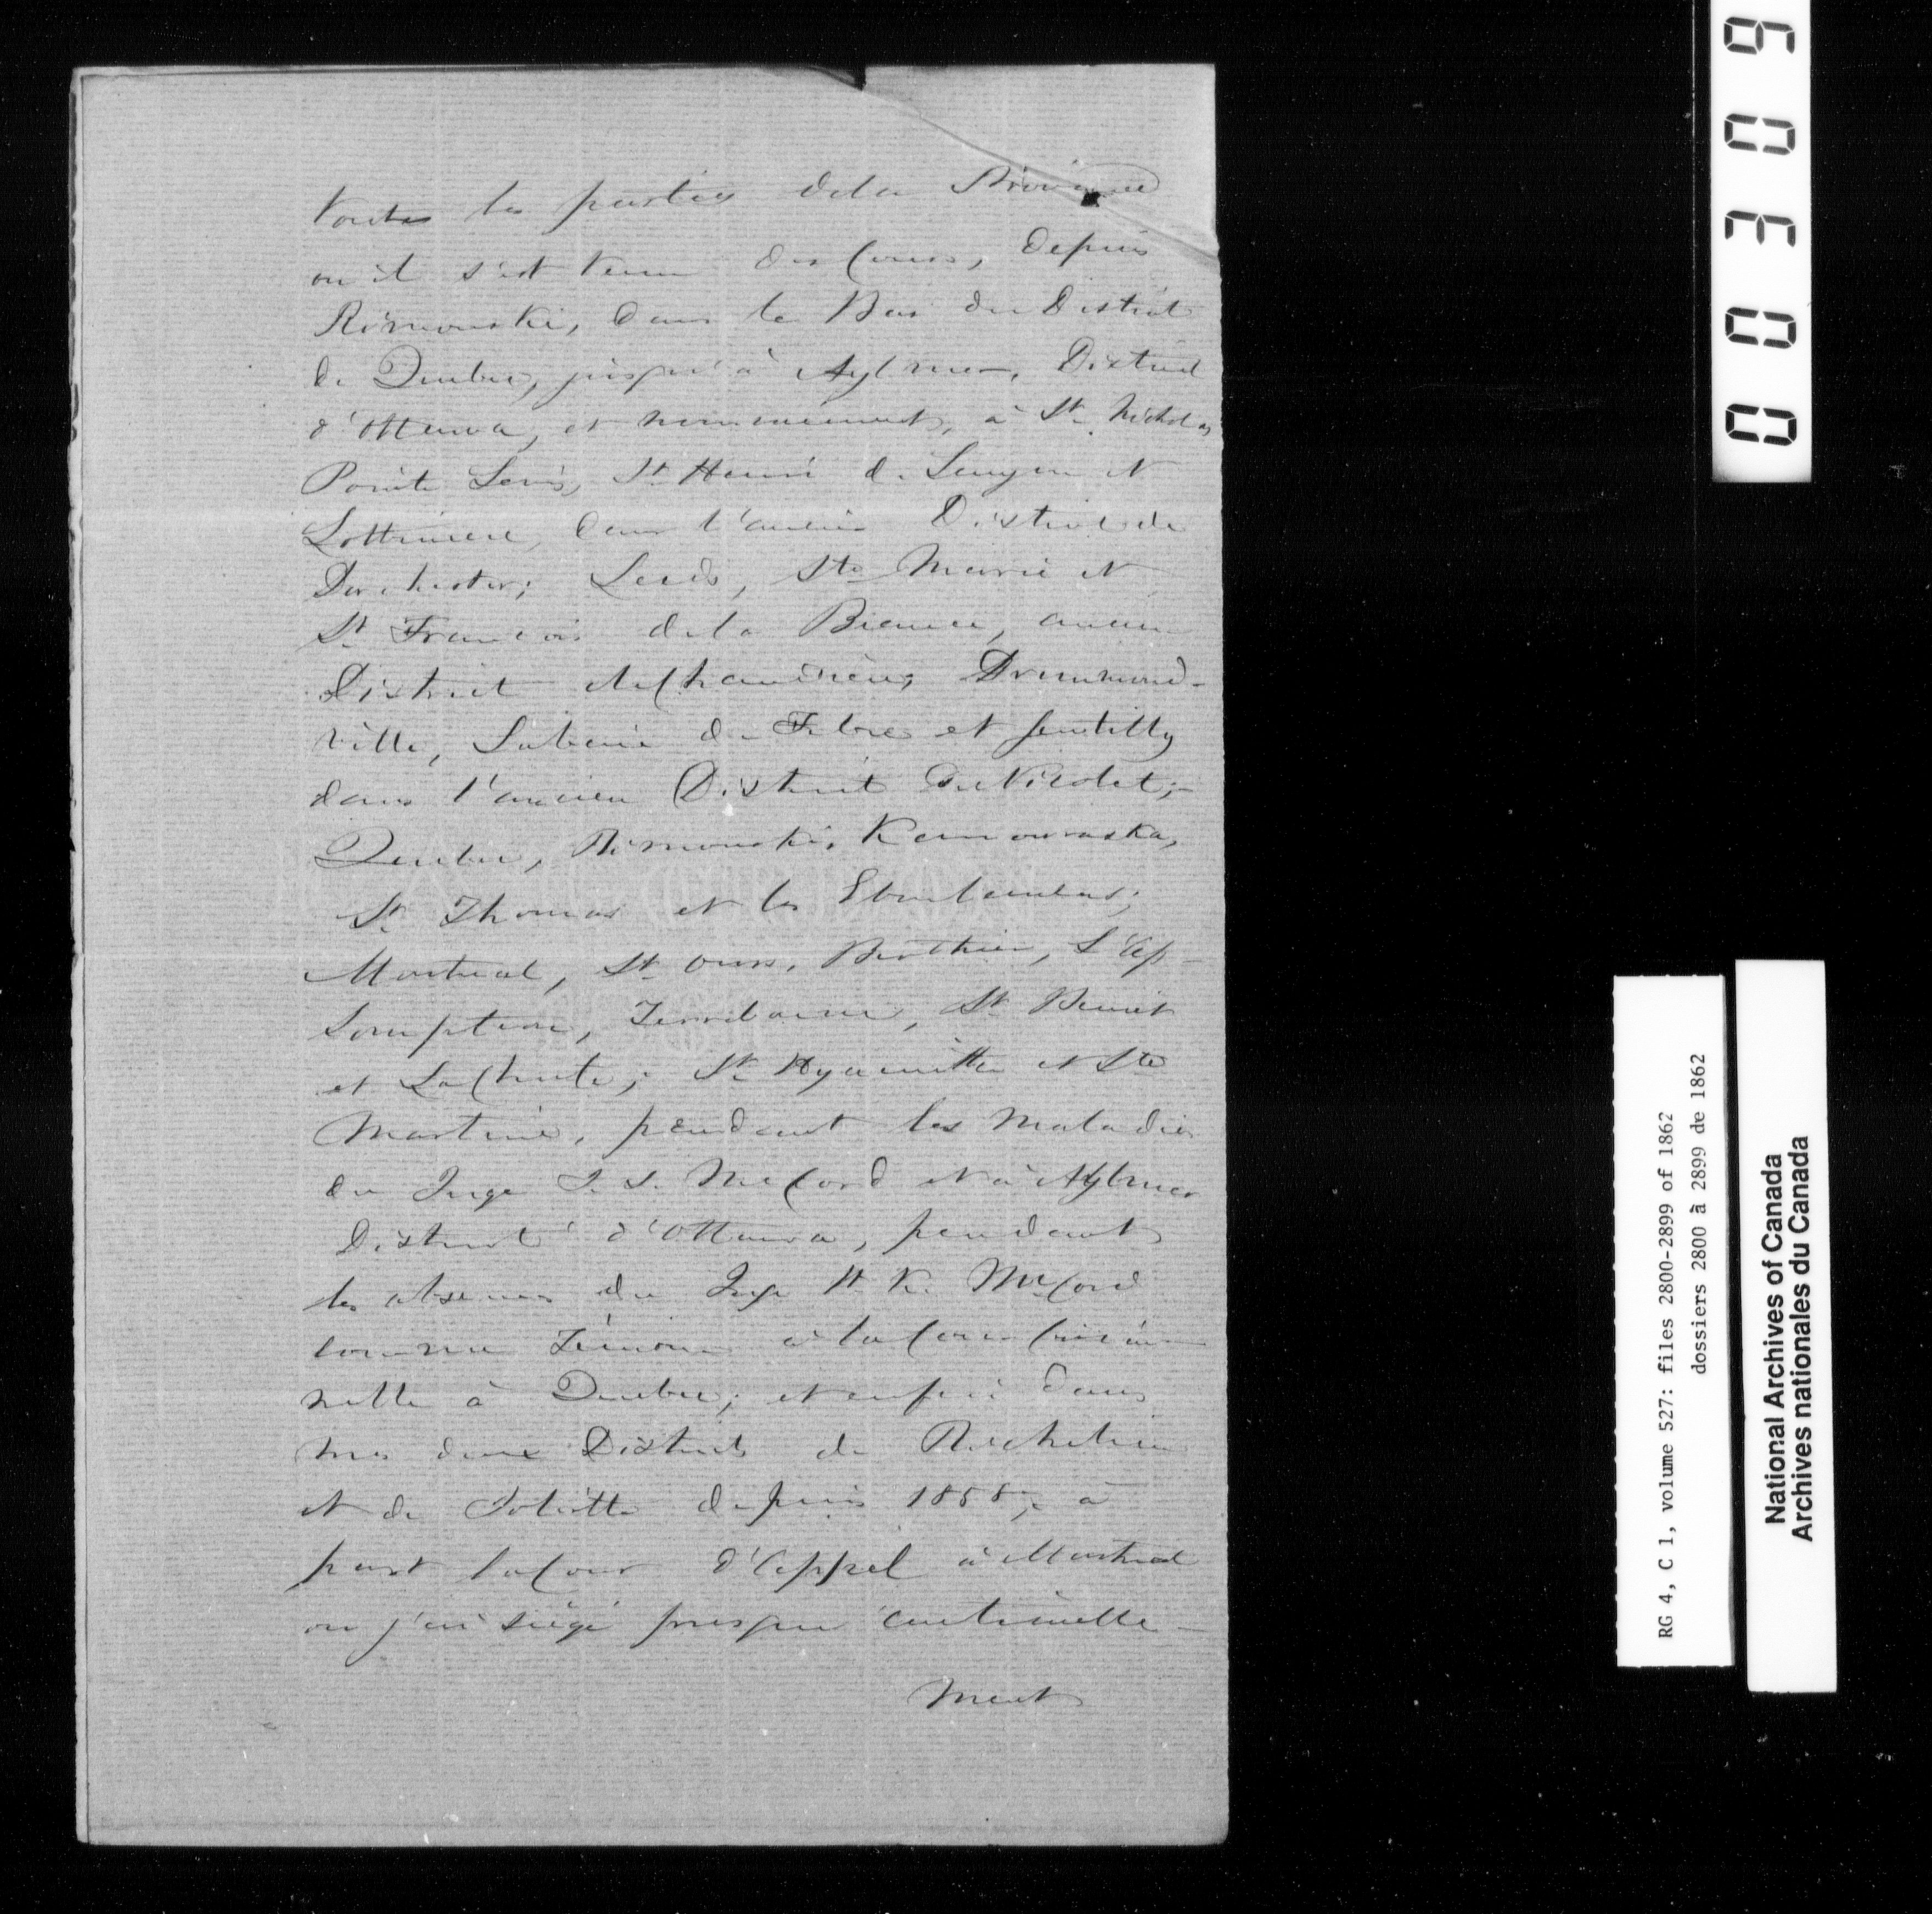 toutes les parties de la Province
où il s'est tenu des Cours, depuis
Rimouski, dans le Bas du District
de Quebec, jusqu'à Aylmer, District
d'Ottawa, et nommément, à St. Nicholas
Pointe Levis, St Henri de Lauzon et
Lotbiniere, dans l'ancien District de
Dorchester; Leeds, Ste Marie et
St François de la Beauce, ancien
District de Chaudière; Drummond-
ville, Labaie du Febvre et Gentilly
dans l'ancien District de Nicolet;-
Quebec, Rimouski, Kamouraska,
St Thomas et les Eboulemens;
Montreal, St Ours, Berthier, L'As-
somption, Terrebonne, St Benoit
et La Chute; St Hyacinthe et Ste
Martine, pendant les maladies
du Juge J. S. McCord et à Aylmer
District d'Ottawa, pendant
les absences du Juge McCord
comme Témoin à la Cour Crimi-
nelle à Quebec; et enfin dans
mes deux Districts de Richelieu
et de Joliette depuis 1858; à
part la Cour d'Appel à Montreal
où j'ai siégé presque continuelle-
ment
00309
RG 4, C 1, volume 527: files 2800-2899 of 1862
dossiers 2800 à 2899 de 1862
National Archives of Canada
Archives nationales du Canada